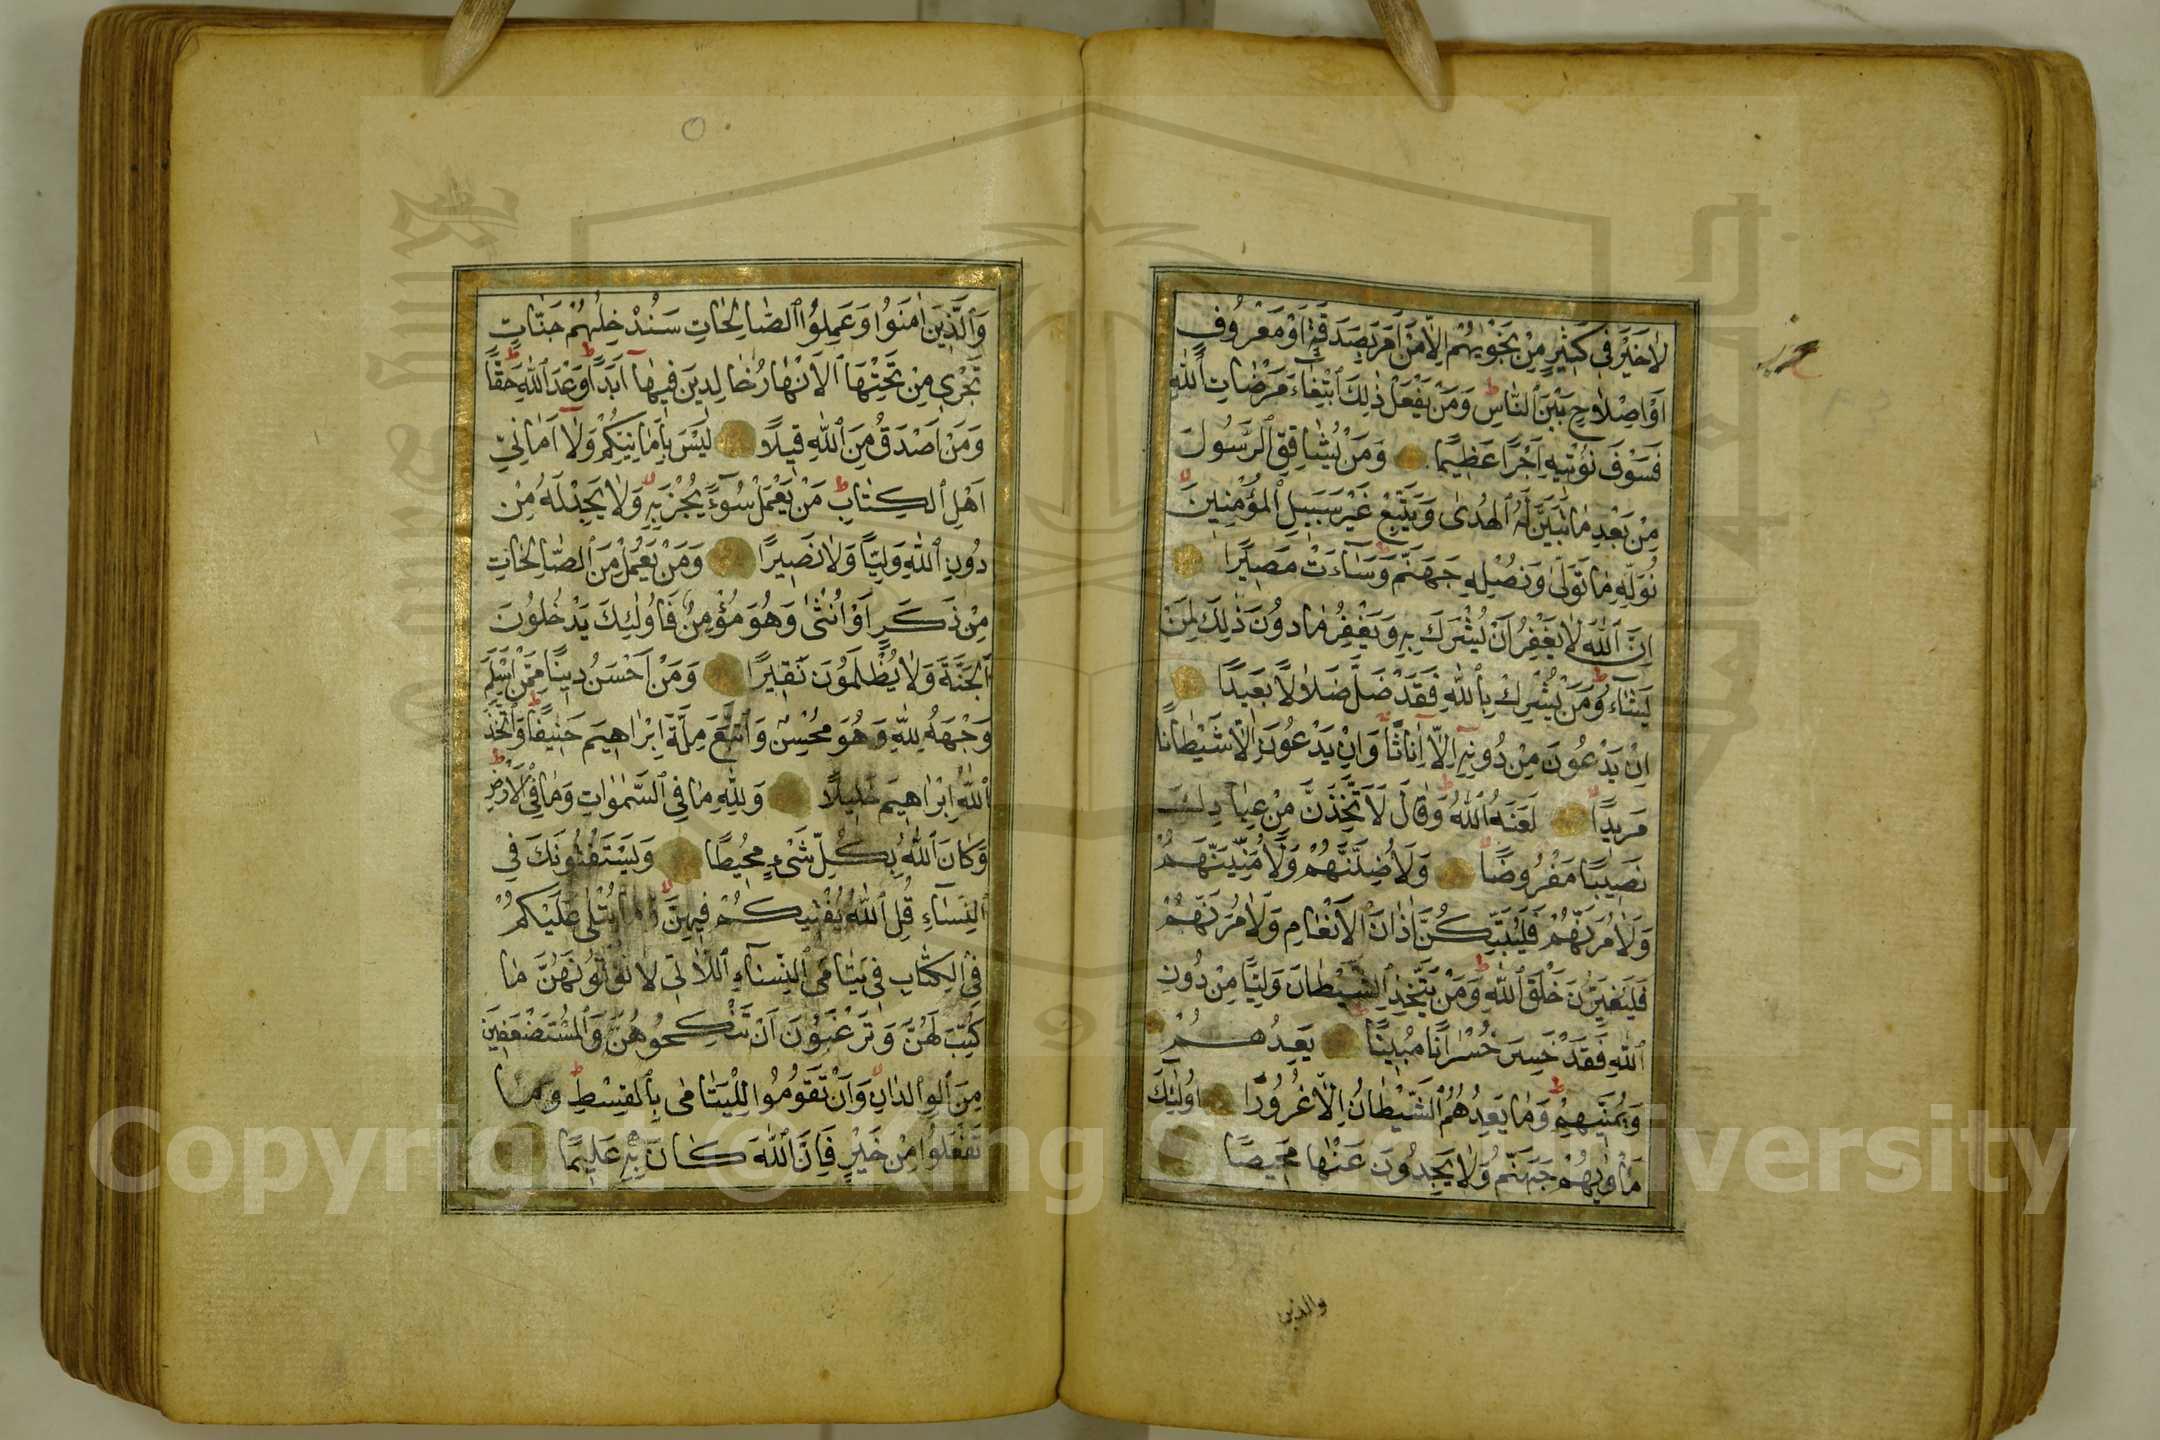 لَا خَيْرَ فِي كَثِيرٍ مِنْ نَجْوٰيهُمْ إِلَّا مَنْ أَمَرَ بِصَدَقَةٍ أَوْ مَعْرُوفٍ
أَوْ إِصْلَاحٍ بَيْنَ النَّاسِ ط وَمَنْ يَفْعَلْ ذٰلِكَ ابْتِغَاءَ مَرْضَاتِ اللّٰهِ
فَسَوْفَ نُؤْتِيهِ أَجْرًا عَظِيمًا وَمَنْ يُشَاقِقِ الرَّسُولَ
مِنْ بَعْدِ مَا تَبَيَّنَ لَهُ الْهُدٰى وَيَتَّبِعْ غَيْرَ سَبِيلِ الْمُؤْمِنِينَ
نُوَلِّهِ مَا تَوَلّٰى وَنُصْلِهِ جَهَنَّمَ ط وَسَاءَتْ مَصِيرًا
إِنَّ اللّٰهَ لَا يَغْفِرُ أَنْ يُشْرَكَ بِهِ وَيَغْفِرُ مَا دُونَ ذٰلِكَ لِمَنْ
يَشَاءُ ط وَمَنْ يُشْرِكْ بِاللّٰهِ فَقَدْ ضَلَّ ضَلَالًا بَعِيدًا
إِنْ يَدْعُونَ مِنْ دُونِهِ إِلَّا إِنَاثًا وَإِنْ يَدْعُونَ إِلَّا شَيْطَانًا
مَرِيدًا لَعَنَهُ اللّٰهُ ط وَقَالَ لَأَتَّخِذَنَّ مِنْ عِبَادِكَ
نَصِيبًا مَفْرُوضًا وَلَأُضِلَّنَّهُمْ وَلَأُمَنِّيَنَّهُمْ
وَلَأٰمُرَنَّهُمْ فَلَيُبَتِّكُنَّ اٰذَانَ الْأَنْعَامِ وَلَأٰمُرَنَّهُمْ
فَلَيُغَيِّرُنَّ خَلْقَ اللّٰهِ ط وَمَنْ يَتَّخِذِ الشَّيْطَانَ وَلِيًّا مِنْ دُونِ
اللّٰهِ فَقَدْ خَسِرَ خُسْرَانًا مُبِينًا يَعِدُهُمْ
وَيُمَنِّيهِمْ ط وَمَا يَعِدُهُمُ الشَّيْطَانُ إِلَّا غُرُورًا أُولٰئِكَ
مَأْوٰيهُمْ جَهَنَّمُ وَلَا يَجِدُونَ عَنْهَا مَحِيصًا
والذين
وَالَّذِينَ اٰمَنُوا وَعَمِلُوا الصَّالِحَاتِ سَنُدْخِلُهُمْ جَنَّاتٍ
تَجْرِي مِنْ تَحْتِهَا الْأَنْهَارُ خَالِدِينَ فِيهَا أَبَدًا ط وَعْدَ اللّٰهِ حَقًّا ط
وَمَنْ أَصْدَقُ مِنَ اللّٰهِ قِيلًا لَيْسَ بِأَمَانِيِّكُمْ وَلَا أَمَانِيِّ
أَهْلِ الْكِتَابِ ط مَنْ يَعْمَلْ سُوءًا يُجْزَ بِهِ وَلَا يَجِدْ لَهُ مِنْ
دُونِ اللّٰهِ وَلِيًّا وَلَا نَصِيرًا وَمَنْ يَعْمَلْ مِنَ الصَّالِحَاتِ
مِنْ ذَكَرٍ أَوْ أُنْثٰى وَهُوَ مُؤْمِنٌ فَأُولٰئِكَ يَدْخُلُونَ
الْجَنَّةَ وَلَا يُظْلَمُونَ نَقِيرًا وَمَنْ أَحْسَنُ دِينًا مِمَّنْ أَسْلَمَ
وَجْهَهُ لِلّٰهِ وَهُوَ مُحْسِنٌ وَاتَّبَعَ مِلَّةَ إِبْرَاهِيمَ حَنِيفًا ط وَاتَّخَذَ
اللّٰهُ إِبْرَاهِيمَ خَلِيلًا وَلِلّٰهِ مَا فِي السَّمٰوَاتِ وَمَا فِي الْأَرْضِ ط
وَكَانَ اللّٰهُ بِكُلِّ شَيْءٍ مُحِيطًا وَيَسْتَفْتُونَكَ فِي
النِّسَاءِ قُلِ اللّٰهُ يُفْتِيكُمْ فِيهِنَّ وَمَا يُتْلٰى عَلَيْكُمْ
فِي الْكِتَابِ فِي يَتَامَى النِّسَاءِ اللَّاتِي لَا تُؤْتُونَهُنَّ مَا
كُتِبَ لَهُنَّ وَتَرْغَبُونَ أَنْ تَنْكِحُوهُنَّ وَالْمُسْتَضْعَفِينَ
مِنَ الْوِلْدَانِ وَأَنْ تَقُومُوا لِلْيَتَامٰى بِالْقِسْطِ ط وَمَا
تَفْعَلُوا مِنْ خَيْرٍ فَإِنَّ اللّٰهَ كَانَ بِهِ عَلِيمًا
Copyright © King Saud University